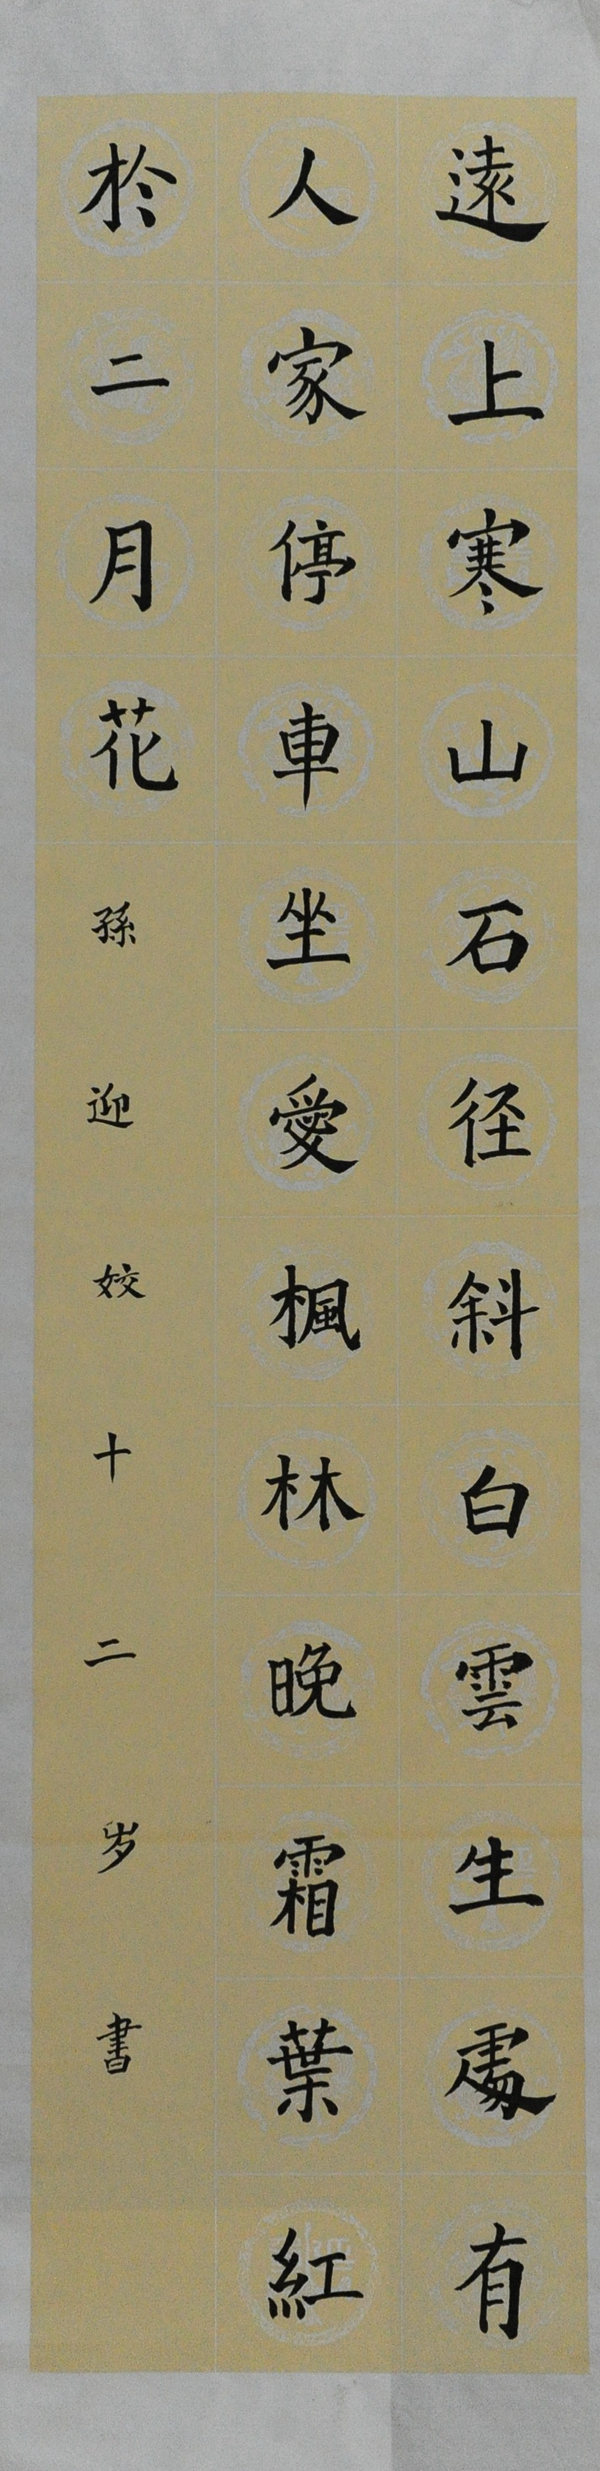 遠上寒山石径斜白雲生處有
人家停車坐愛楓林晚霜葉紅
於二月花孫迎姣十二岁書